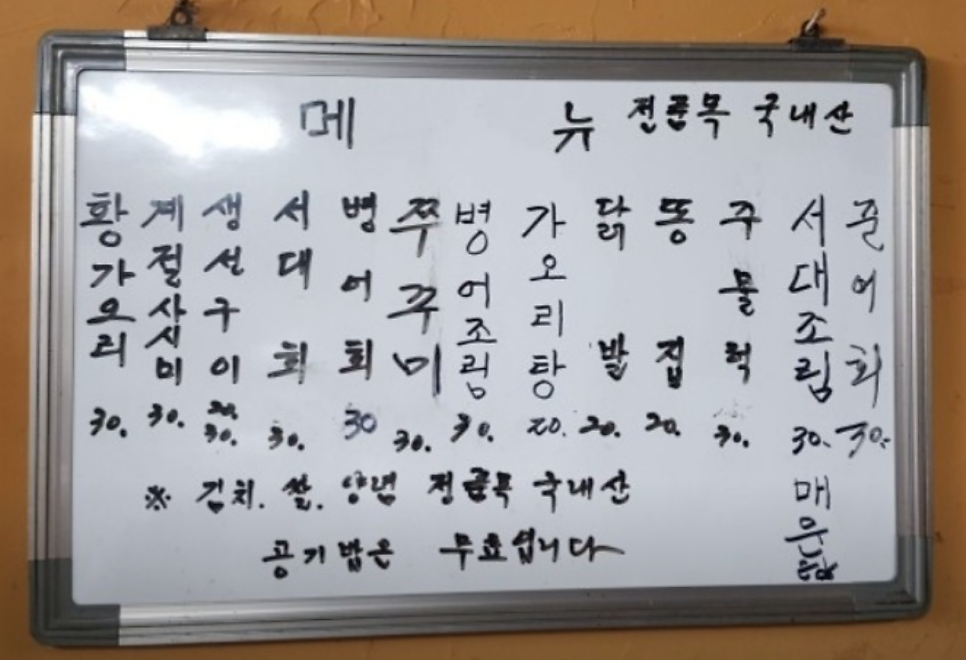 메 뉴 전품목 국내산
황가오리 30.
계절사시미 30.
생선구이 20. 30.
서대회 30.
병어회 30
쭈꾸미 30.
병어조림 30.
가오리탕 20.
닭발 20.
똥집 20.
주물럭 30.
서대조림 30.
준어회 30.
매운탕
※ 김치. 쌀. 양념 전품목 국내산
공기밥은 무료입니다